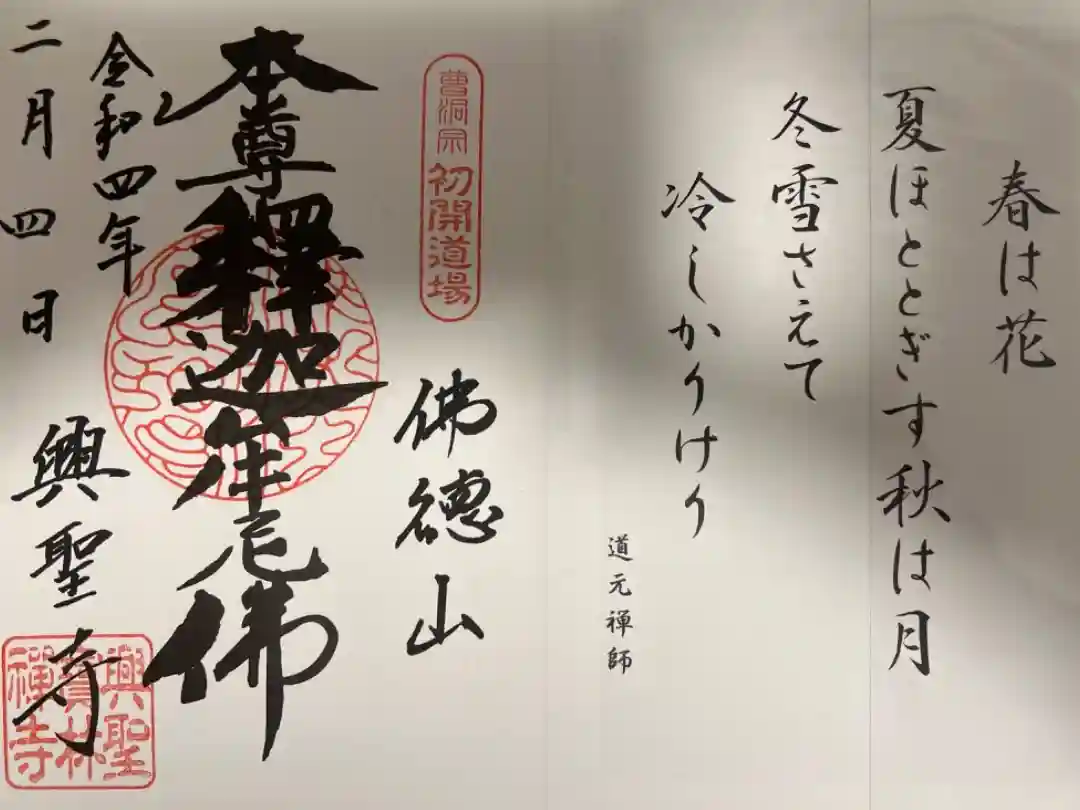 春は花
夏ほととぎす秋は月
冬雪さえて
冷しかりけり
道元禅師
曹洞宗 初開道場
佛德山
本尊釋迦牟尼佛
令和四年
二月四日
興聖寺
興聖
寳林
禅寺